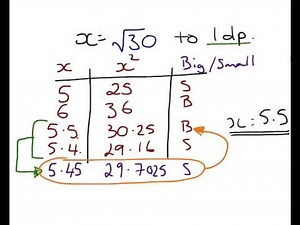 x = √30 to 1dp.
x x² Big/Small
5 25 S
6 36 B
5.5 30.25 B
5.4 29.16 S
5.45 29.7025 S
x = 5.5